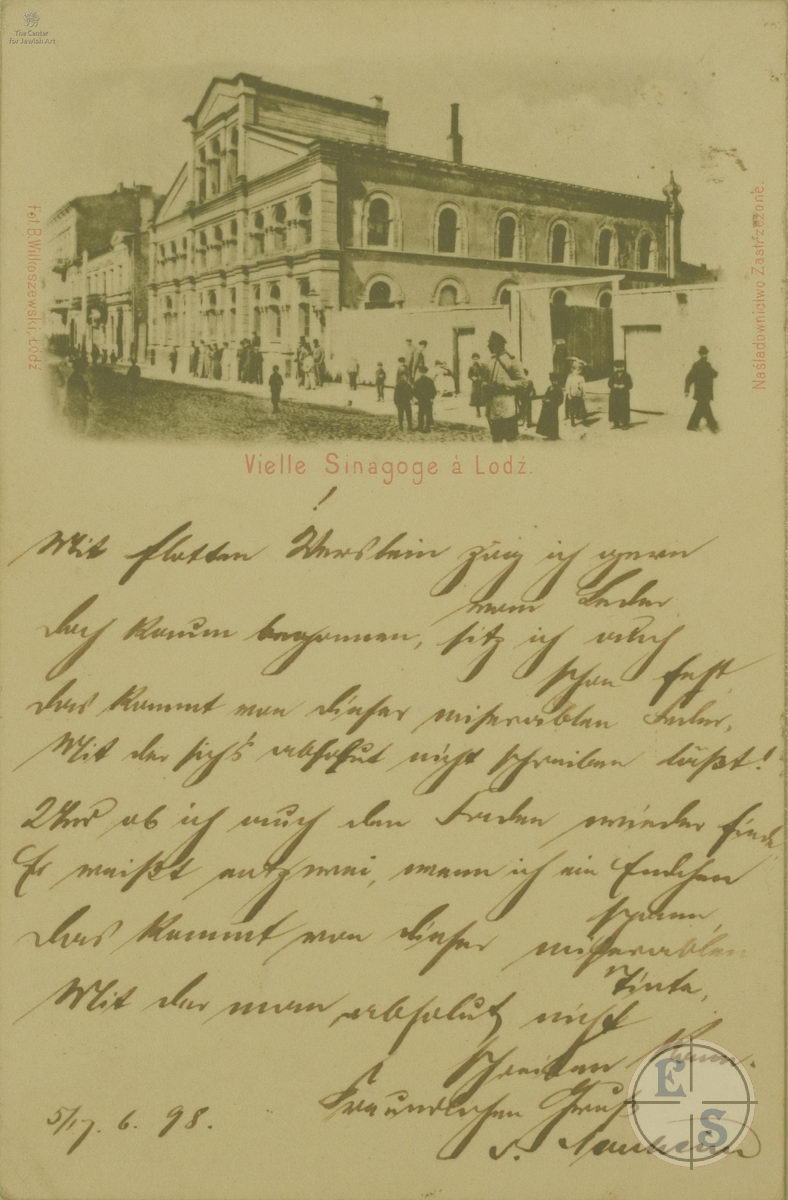 The Center
for Jewish Art
Fot. B. Wilkoszewski, Łódź
Naśladownictwo Zastrzeżone.
Vielle Sinagoge à Lodź.
Mit flotten Verslein zög ich gern
vom Leder
doch kaum begonnen, sitz ich auch
schon fest,
das kommt von dieser miserablen Feder,
Mit der sich's absolut nicht schreiben läßt!
Und ob ich auch den Faden wieder finde,
Er reißt entzwei, wenn ich ein Endchen
spann,
das kommt von dieser miserablen
Tinte,
Mit der man absolut nicht
schreiben kann.
Freundlichen Gruß
5/17. 6. 98.
E S